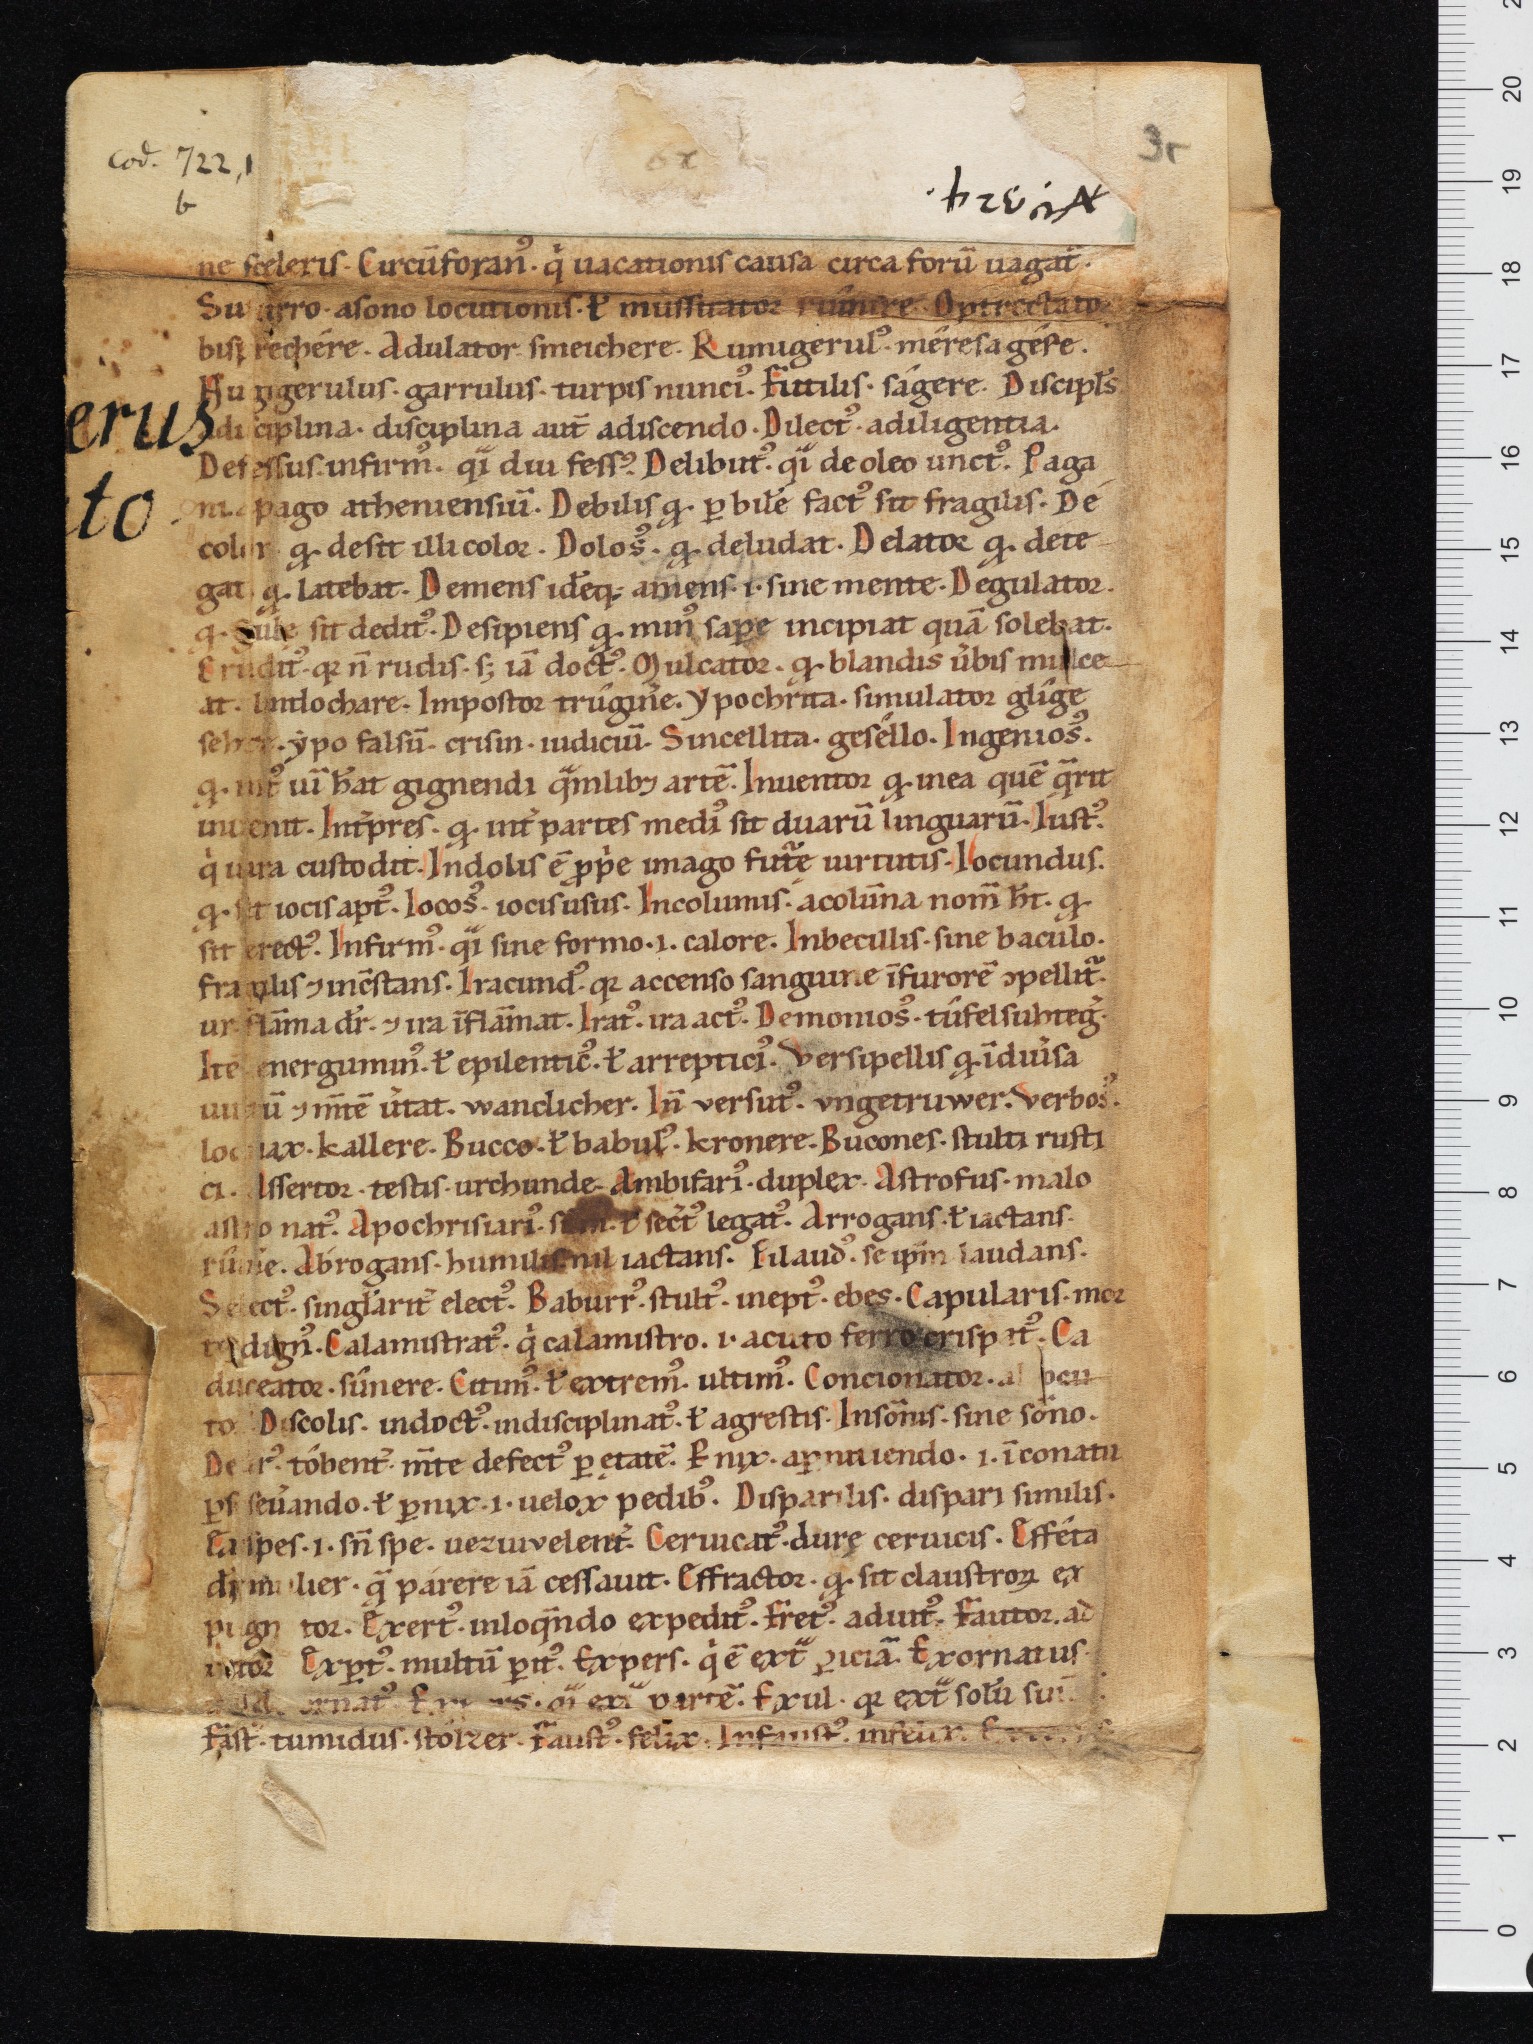 Cod. 722,1
b
3r
erus
ato
ne sceleris. Circūforan᾽. q̇ uacationis causa circa forū uagat᷑.
Susurro. asono locutionis. ł mussitator rúnere. Optrectato
bisprechére. Adulator smeichere. Rumigerul᾽. méresagére.
Nugigerulus. garrulus. turpis nunci᾽. Futilis. ságere. Discipl᾽s
adisciplina. disciplina aut̄ adiscendo. Dilect᾽. adiligentia.
Defessus. infirm᾽. qͣi diu fess᾽. Delibut᾽. qͣi de oleo unct᾽. Paga
ni. apago atheniensiū. Debilis qͩ. ꝑ bilē fact᾽ sit fragilis. De
color qͩ. desit illi color. Dolos᾽. qͩ. deludat. Delator qͩ. dete
gat qͩ. latebat. Demens idēq; amens. i. sine mente. Degulator.
qͩ. gule sit dedit᾽. Desipiens qͩ. min᾽ saꝑe incipiat quā solebat.
Erudit᾽. qꝛ n̄ rudis. s; iā doct᾽. Mulcator. qͩ. blandis u᾽bis mulce
at. lindochare. Impostor trúgin᾽e. Ypochrita. simulator glíge
sehere. ypo falsū. crisin. iudiciū. Sincellita. geséllo. Ingenios᾽.
qͩ. int᾽ uī habeat gignendi qͣmlibꝫ artē. Inuentor qͩ. inea quē q̄rit
inuenit. Int᾽pres. qͩ. int᾽ partes medi᾽ sit duarū linguarū. Iust᾽.
q̇ iura custodit. Indolis ē ꝓp᾽e imago fut᷑e uirtutis. Iocundus.
qͩ. sit iocis apt᾽. Iocos᾽. iocis usus. Incolumis. acolūna nom̄ h᾽t. qͩ
sit erect᾽. Infirm᾽. qͣi sine formo. i. calore. Inbecillis. sine baculo.
fragilis ⁊ incͦstans. Iracund᾽. qꝛ accenso sanguine īfurorē ꝯpellit᷑.
ur flāma dr̄. ⁊ ira īflāmat. Irat᾽. ira act᾽. Demonios᾽. túfelsuhteg᾽.
Itē energumin᾽. ł epilentic᾽. ł arreptici᾽. Versipellis qͩ. īdiu᾽sa
uultū ⁊ m̄tē u᾽tat. wanclicher. In̄ versut᾽. vngetruwer. Verbos᾽.
loquax. kallere. Bucco. ł babul᾽. kronere. Bucones. stulti rusti
ci. Assertor. testis. urchunde. Ambifari᾽. duplex. Astrofus. malo
astro nat᾽. Apochrisiari᾽. ł secr᾽t᾽ legat᾽. Arrogans. ł iactans.
Abrogans. humilis. nil iactans. Filaud᾽. se ip̄m laudans.
Select᾽. singl᾽arit᾽ elect᾽. Baburr᾽. stult᾽. inept᾽. ebes. Capularis. mor
te dign᾽. Calamistrat᾽. q̇ calamistro. i. acuto ferro crispat᾽. Ca
duceator. súnere. Citim᾽. ł extrem᾽. ultim᾽. Concionator. al locu
tor Discolis. indoct᾽. indisciplinat᾽. ł agrestis. Insōnis. sine sōno.
tóbent᾽. m̄te defect᾽ ꝑ ętatē. Enix. apnitendo. i. īconatu
ꝑseu᾽ando. ł ꝑnix. i. uelox pedib᾽. Disparilis. dispari similis.
Exspes. i. sn̄ spe. uezwivelent᾽. Ceruicat᾽. durę ceruicis. Effeta
dr̄ mulier. q̄ párere iā cessauit. Effractor. qͩ. sit claustroꝝ ex
pugnator. Exert᾽. inloq̄ndo expedit᾽. Fret᾽. aduit᾽. Fautor. ad
iutor Exꝑt᾽. multū ꝑit᾽. Expers. q̇ ē ext᷑ ꝑiciā. Exornatus.
ornat᾽. Expers. qͣi ext᷑ partē. Exul. qꝛ ext᷑ solū suū.
Fast᾽. tumidus. stolzer. Faust᾽. felix. Infaust᾽. infelix.